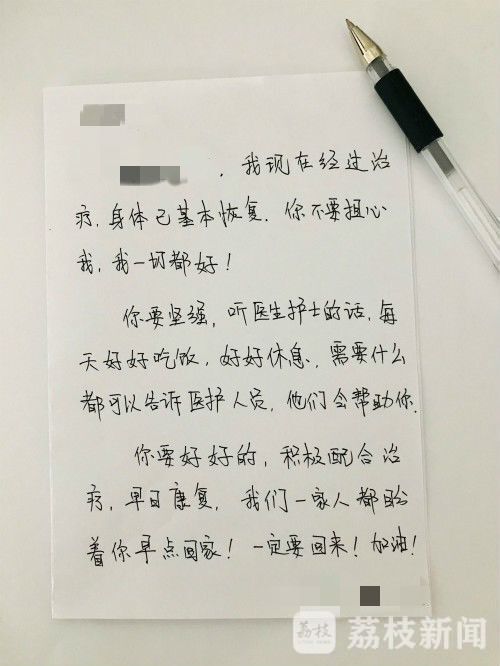 ，我现在经过治
疗，身体已基本恢复．你不要担心
我，我一切都好！
你要坚强，听医生护士的话，每
天好好吃饭，好好休息，需要什么
都可以告诉医护人员，他们会帮助你．
你要好好的，积极配合治
疗，早日康复，我们一家人都盼
着你早点回家！一定要回来！加油！
荔枝 荔枝新闻